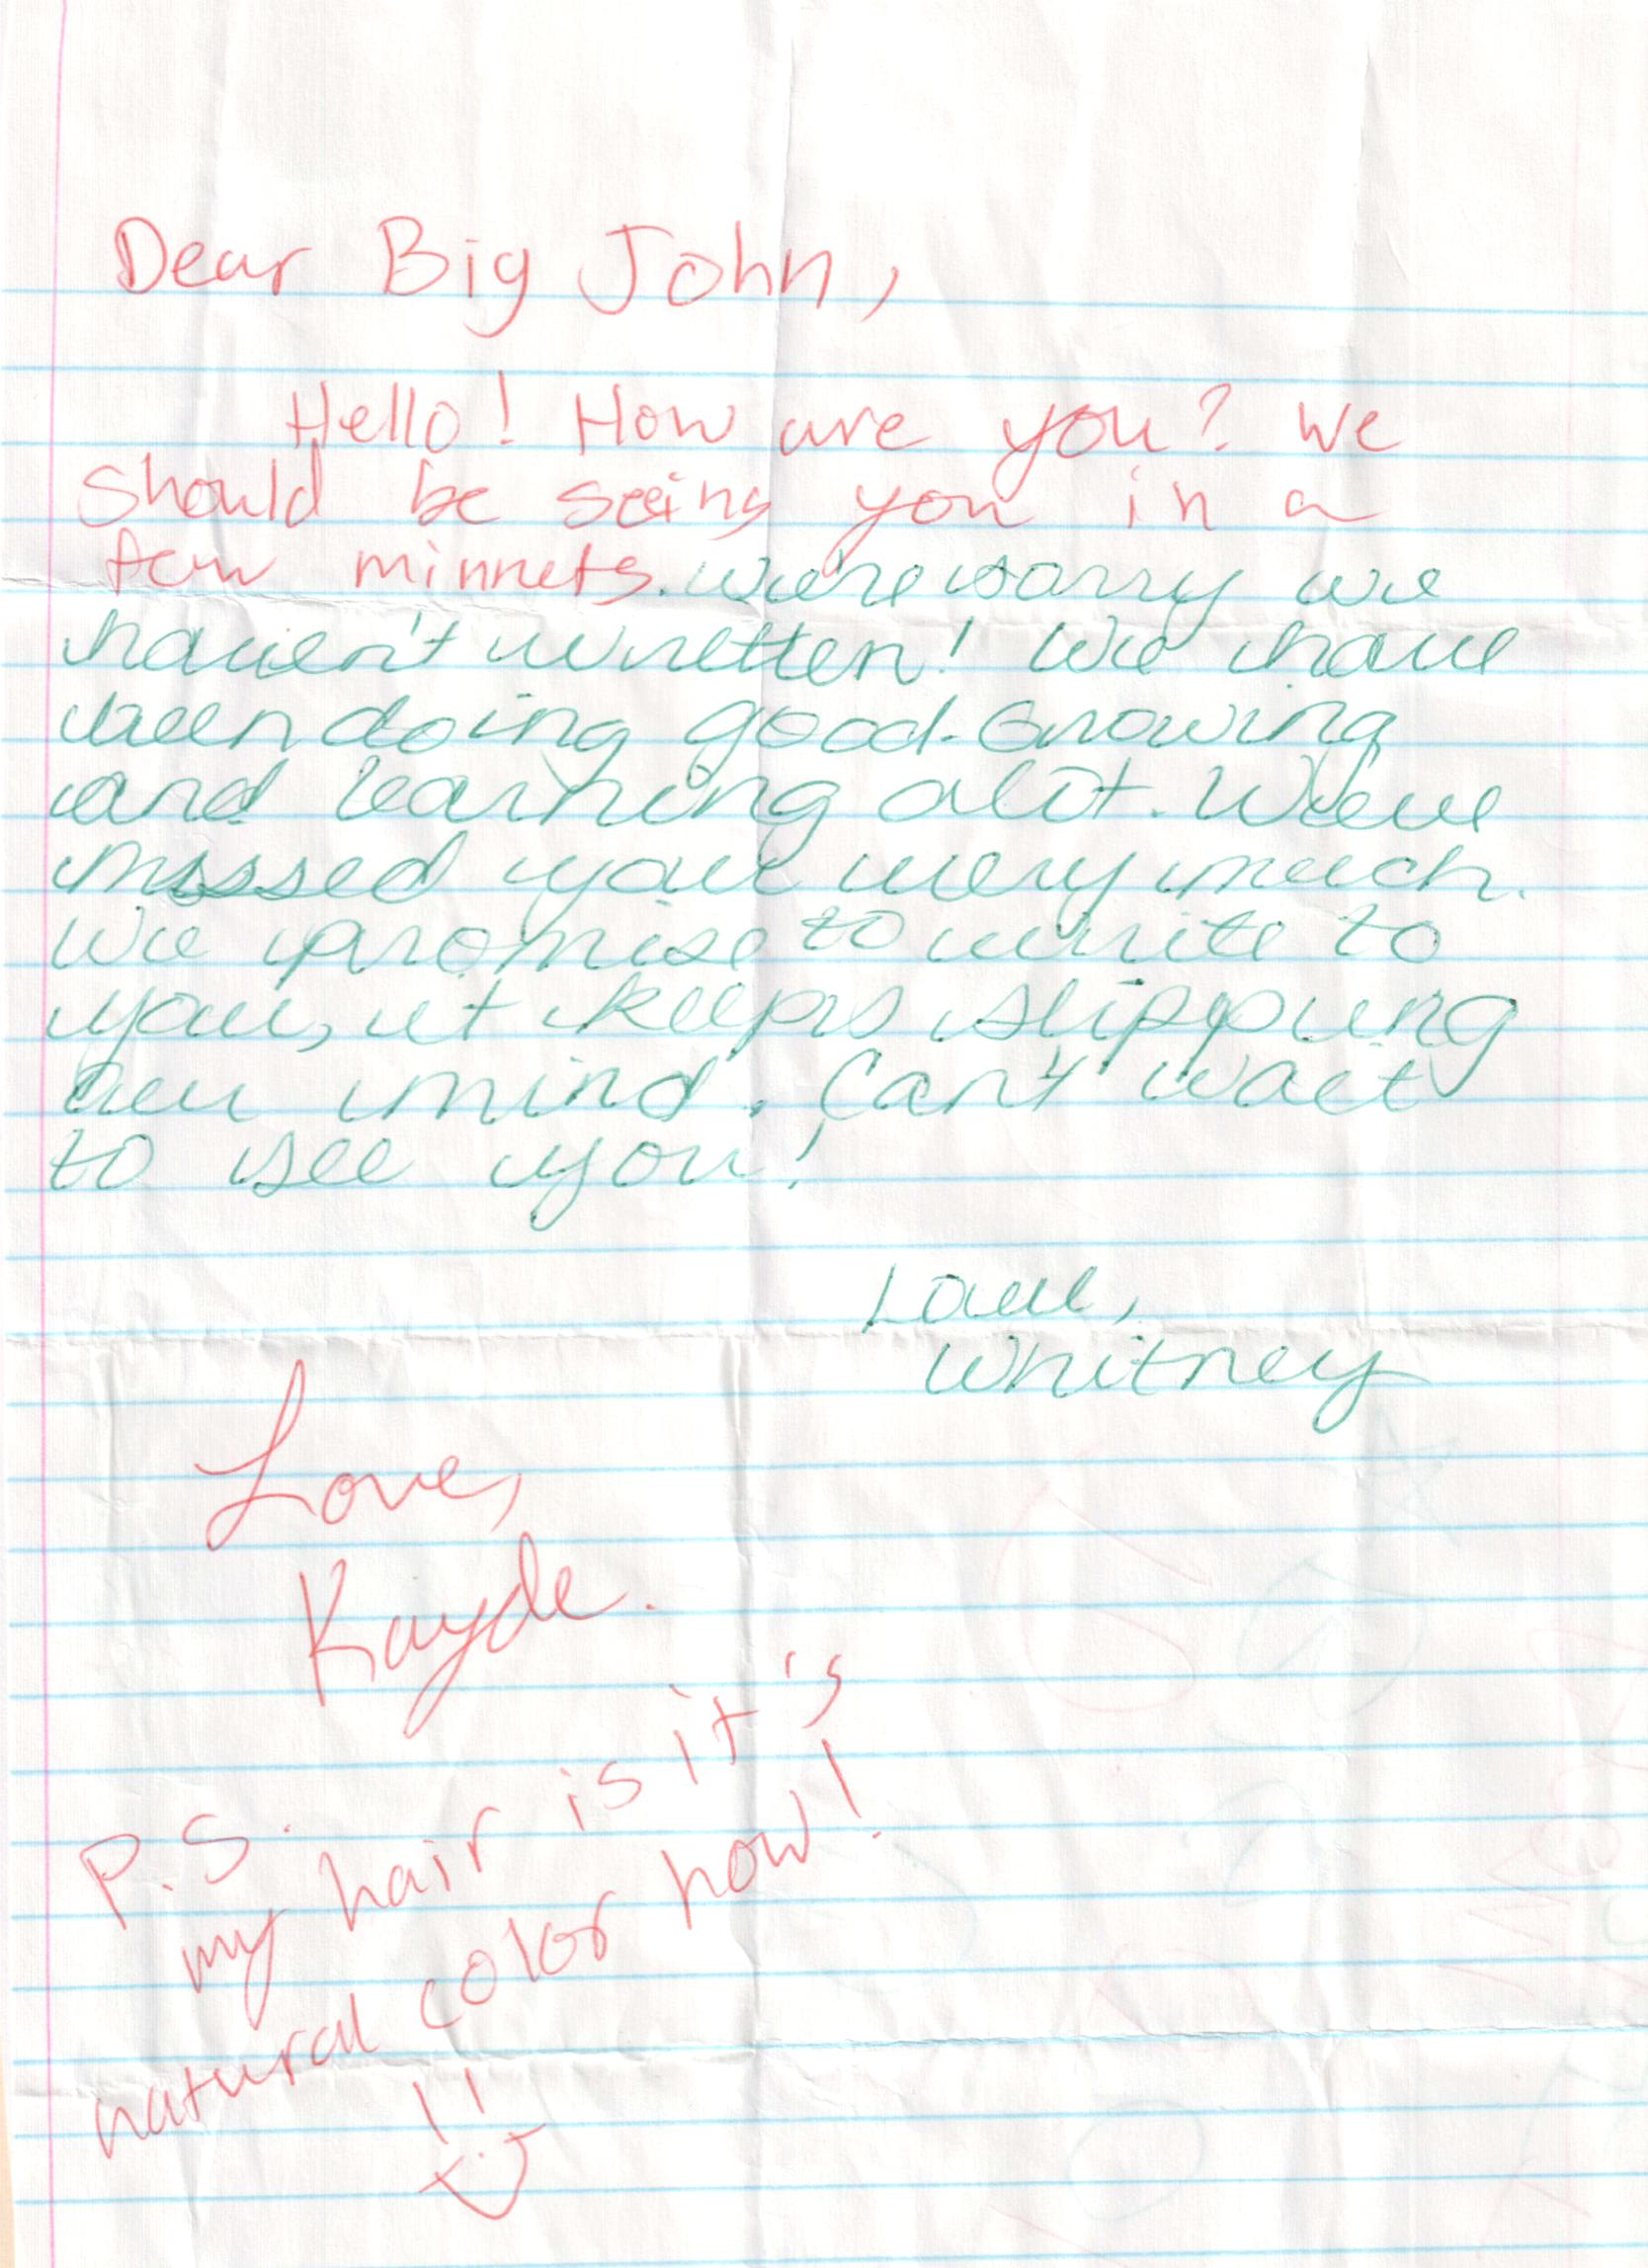 Dear Big John,
Hello! How are you? We
should be seeing you in a
few minnets. We're sorry we
haven't written! We have
been doing good. Growing
and learning alot. We've
missed you very much.
We promise to write to
you, it keeps slipping
our mind. Can't wait
to see you!
Love,
Whitney
Love,
Kayde.
P.S.
my hair is it's
natural color now!